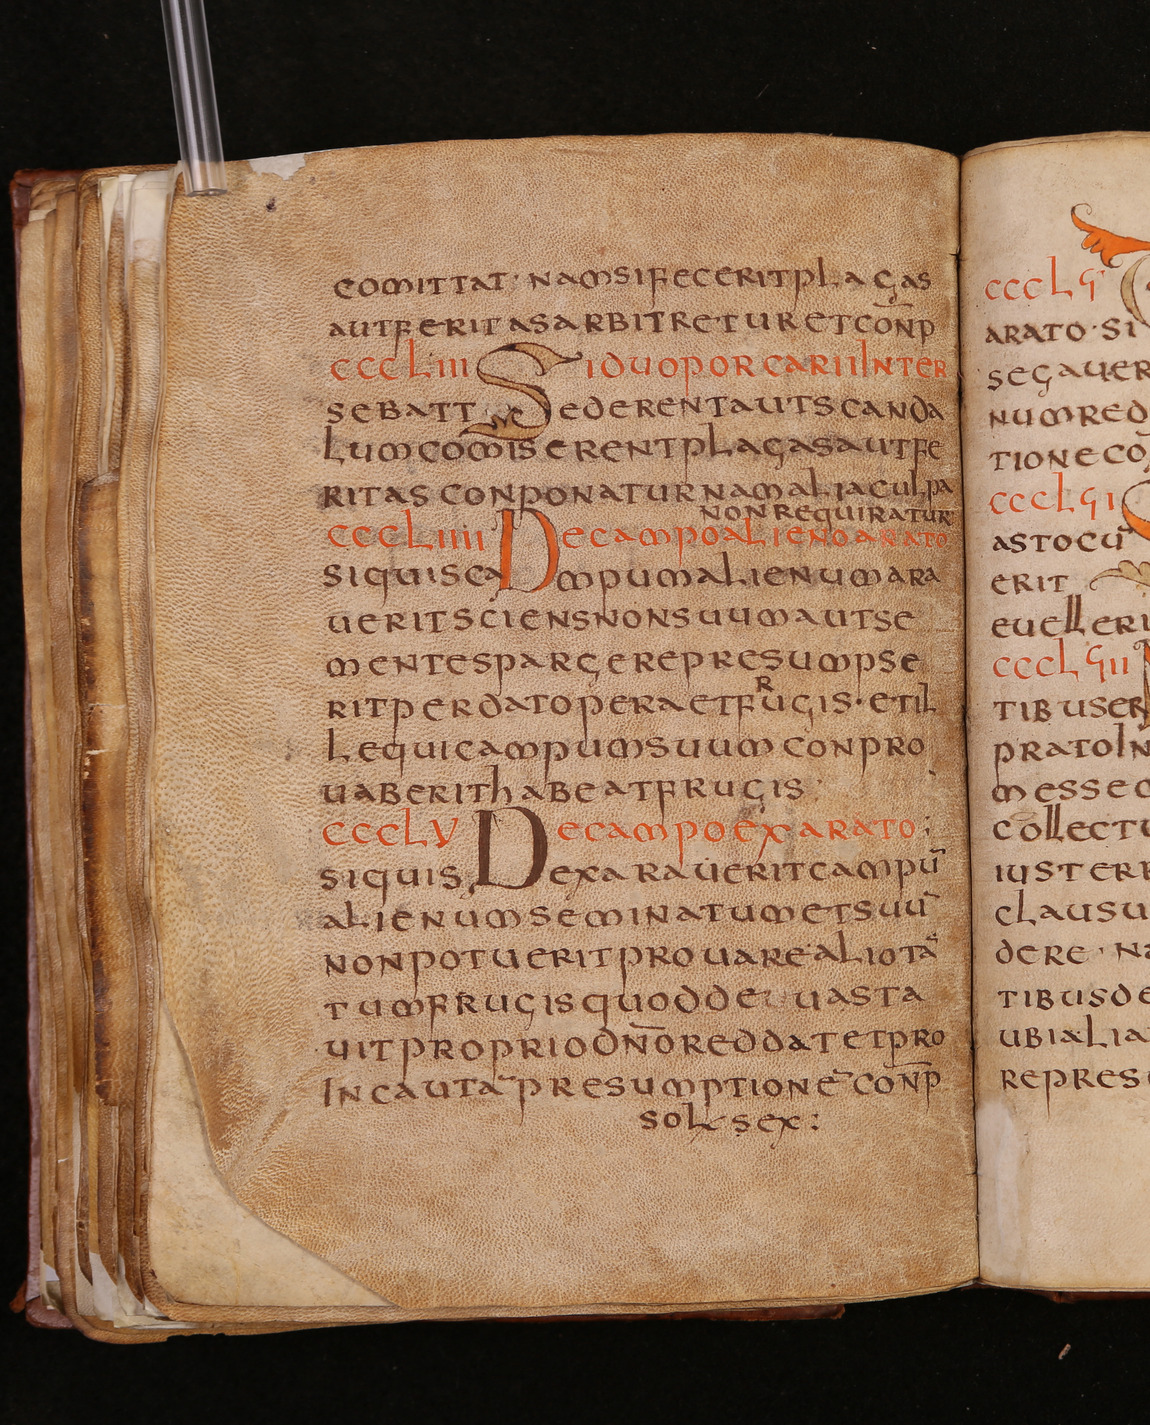 comittat · namsifeceritplagas
autferitasarbitreturetcōnp
cccLiii Siduoporcarii inter
sebatt ederentautscanda
lumcomiserentplagasautfe
ritas conponaturnamaliaculpa
nonrequiratur
cccLiiii Decampoalienoarato
siquisca mpumalienumara
ueritsciensnonsuumautse
mentespargerepresumpse
ritperdatoperaetfrugis · etil
lequicampumsuumconpro
uaberithabeatfrugis :
cccLv Decampoexarato ;
siquis exaraueritcampū
alienumseminatumetsuū
nonpotueritprouarealiotā
tumfrugisquodde uasta
uitpropriodn̄oreddatetpro
incautapresumptionecōnp
sol sex :
cccLvi
arato · si
segauer
numred
tioneco
cccLvi i
astocū
erit
euelleri
cccLvii
tibuser
pratoin
messe
collectu
iusterr
clausu
dere · na
tibusde
ubialia
repres